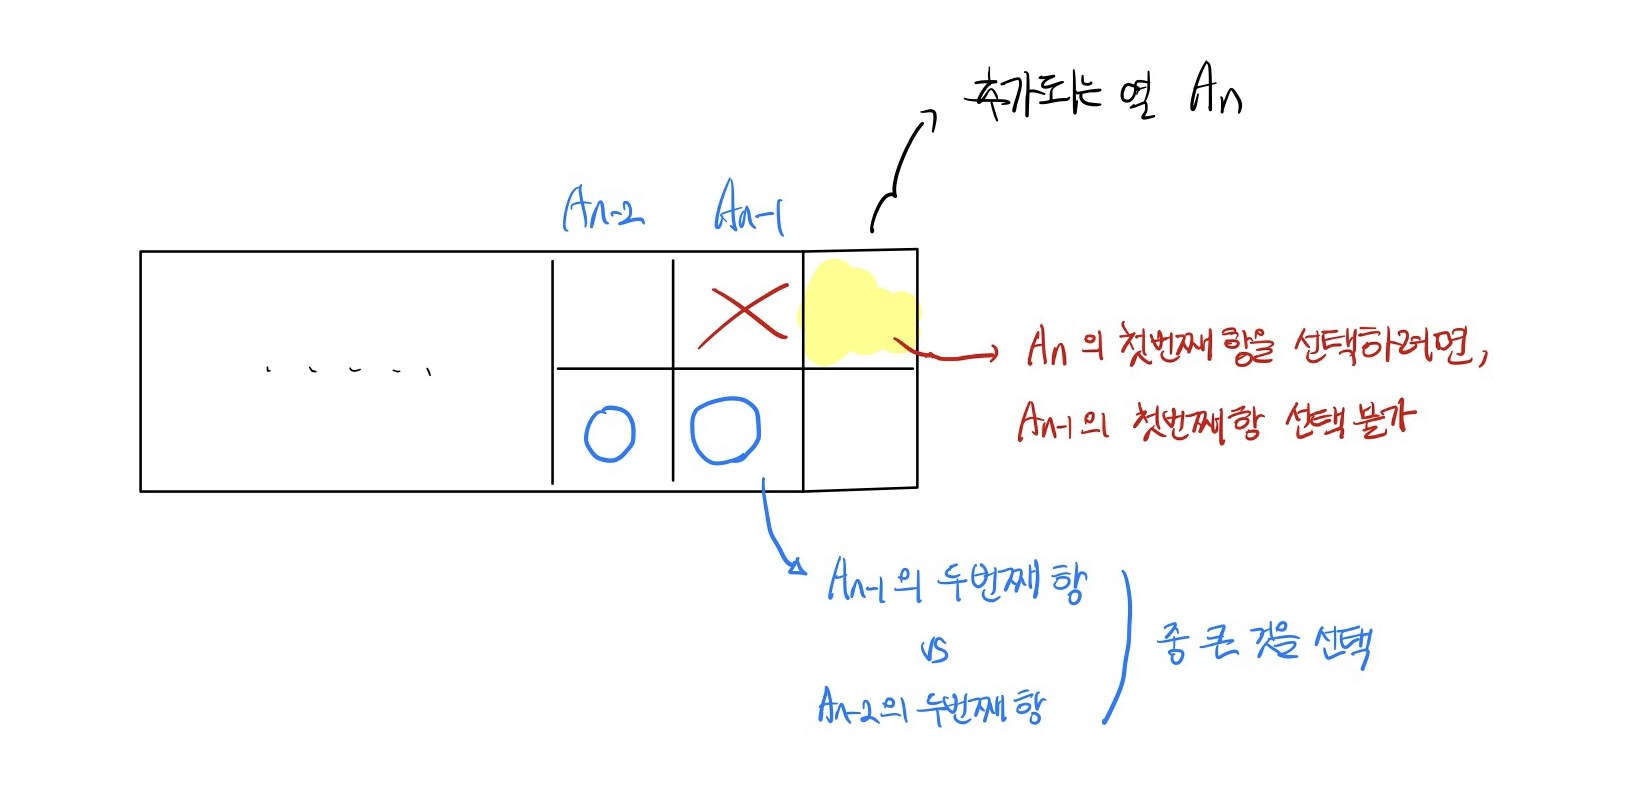 추가되는 열 An
An-2 An-1
An의 첫번째 항을 선택하려면,
An-1의 첫번째 항 선택 불가
An-1의 두번째 항
vs
중 큰 것을 선택
An-2의 두번째 항